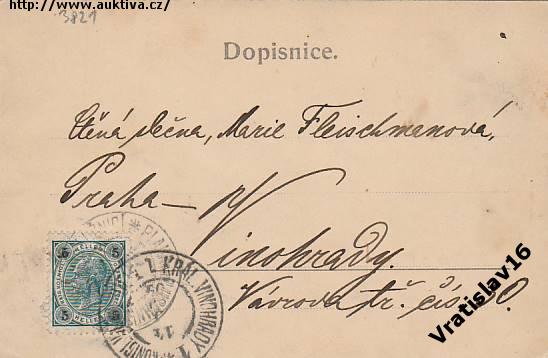 http://www.auktiva.cz/
3821
Dopisnice.
Ctěná slečna, Marie Fleischmanová,
Praha—
Vinohrady.
Vávrova tř. čís.
5 5
5 5
HELLER
KRÁL. VINOHRADY 1
Vratislav16